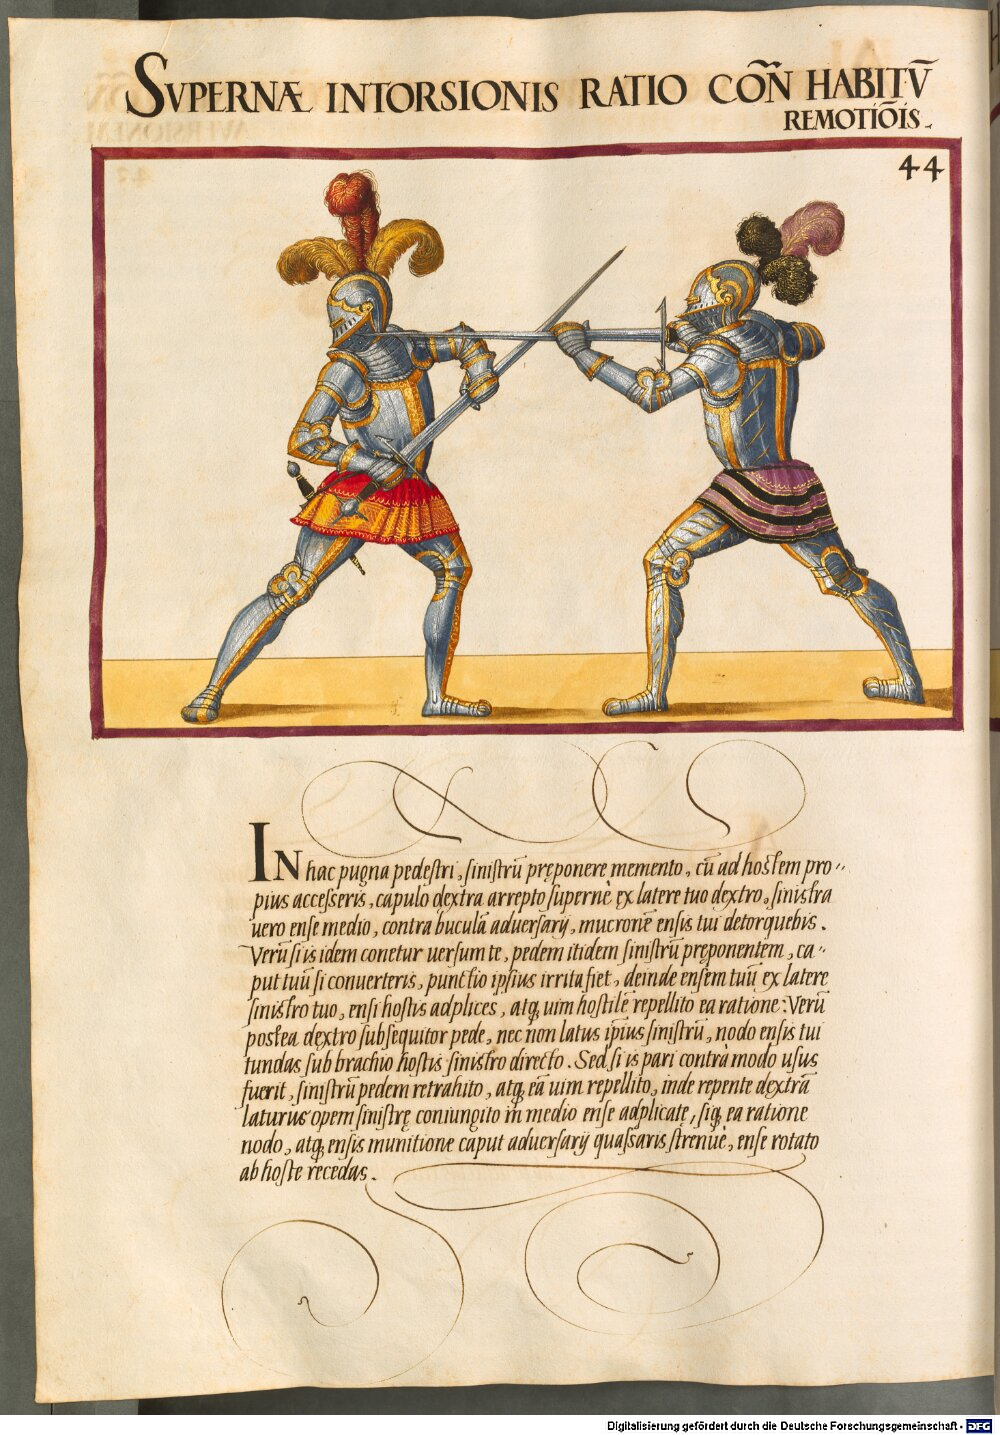 SVPERNÆ INTORSIONIS RATIO CÕÑ HABITṼ
REMOTIÕIS.
44
IN hac pugna pedestri, sinistrũ pręponere memento, cũ ad hostem pro„
pius accesseris, capulo dextra arrepto supernè ex latere tuo dextro, sinistra
uero ense medio, contra buculã aduersarij, mucronẽ ensis tui detorquebis.
Verũ si is idem conetur uersum te, pedem itidem sinistrũ pręponentem, ca„
put tuũ si conuerteris, punctio ipsius irrita fiet, deinde ensem tuũ ex latere
sinistro tuo, ensi hostis adplices, atq; uim hostilẽ repellito ea ratione: Verũ
postea dextro subsequitor pede, nec non latus ip̃ius sinistrũ, nodo ensis tui
tundas sub brachio hostis sinistro directo. Sed si is pari contrà modo usus
fuerit, sinistrũ pedem retrahito, atq; eã uim repellito, inde repente dextrã
laturus opem sinistrę coniungito in medio ense adplicatę, sicq; ea ratione
nodo, atq; ensis munitione caput aduersarij quassaris strenuè, ense rotato
ab hoste recedas.
Digitalisierung gefördert durch die Deutsche Forschungsgemeinschaft - DFG